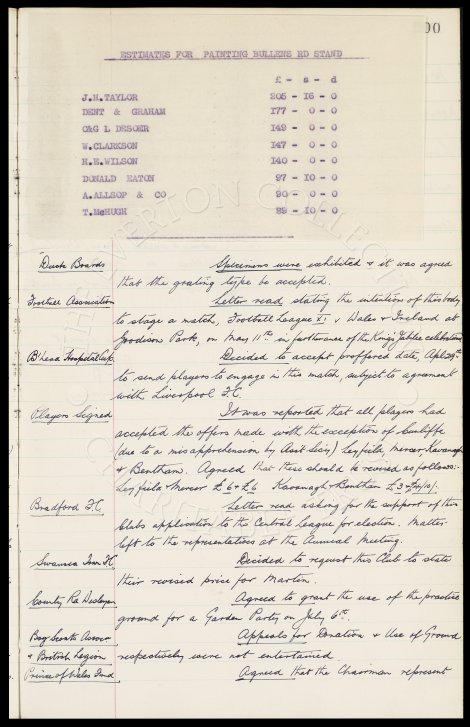 00
ESTIMATES FOR PAINTING BULLENS RD STAND
£ - s - d
J.H.TAYLOR 205 - 16 - 0
DENT & GRAHAM 177 - 0 - 0
C&G L DESOER 149 - 0 - 0
W.CLARKSON 147 - 0 - 0
H.E.WILSON 140 - 0 - 0
DONALD EATON 97 - 10 - 0
A.ALLSOP & CO 90 - 0 - 0
T.McHUGH 89 - 10 - 0
Duck Boards Specimens were exhibited & it was agreed
that the grating type be accepted.
Football Association Letter read, stating the intention of this body
to stage a match, Football League XI v Wales & Ireland at
Goodison Park, on May 11th in furtherance of the King's Jubilee celebrations
B'head Hospital Cup Decided to accept proffered date, Apl 29th
to send players to engage in this match, subject to agreement
with Liverpool F.C.
Players Signed It was reported that all players had
accepted the offers made with the exception of Cunliffe
(due to a misapprehension by Asst Secy) Leyfield, Mercer, Kavanagh
& Bentham. Agreed that these should be revised as follows:-
Leyfield & Mercer £6 & £6 Kavanagh & Bentham £3
Bradford F.C. Letter read asking for the support of this
Clubs application to the Central League for election. Matter
left to the representatives at the Annual Meeting.
Swansea Town FC Decided to request this Club to state
their revised price for Martin.
County Rd Wesleyan Agreed to grant the use of the practice
ground for a Garden Party on July 6th.
Boy Scouts Assocn Appeals for Donation & Use of Ground
& British Legion respectively were not entertained
Prince of Wales Fund Agreed that the Chairman represent
EVERTON COLLECTION